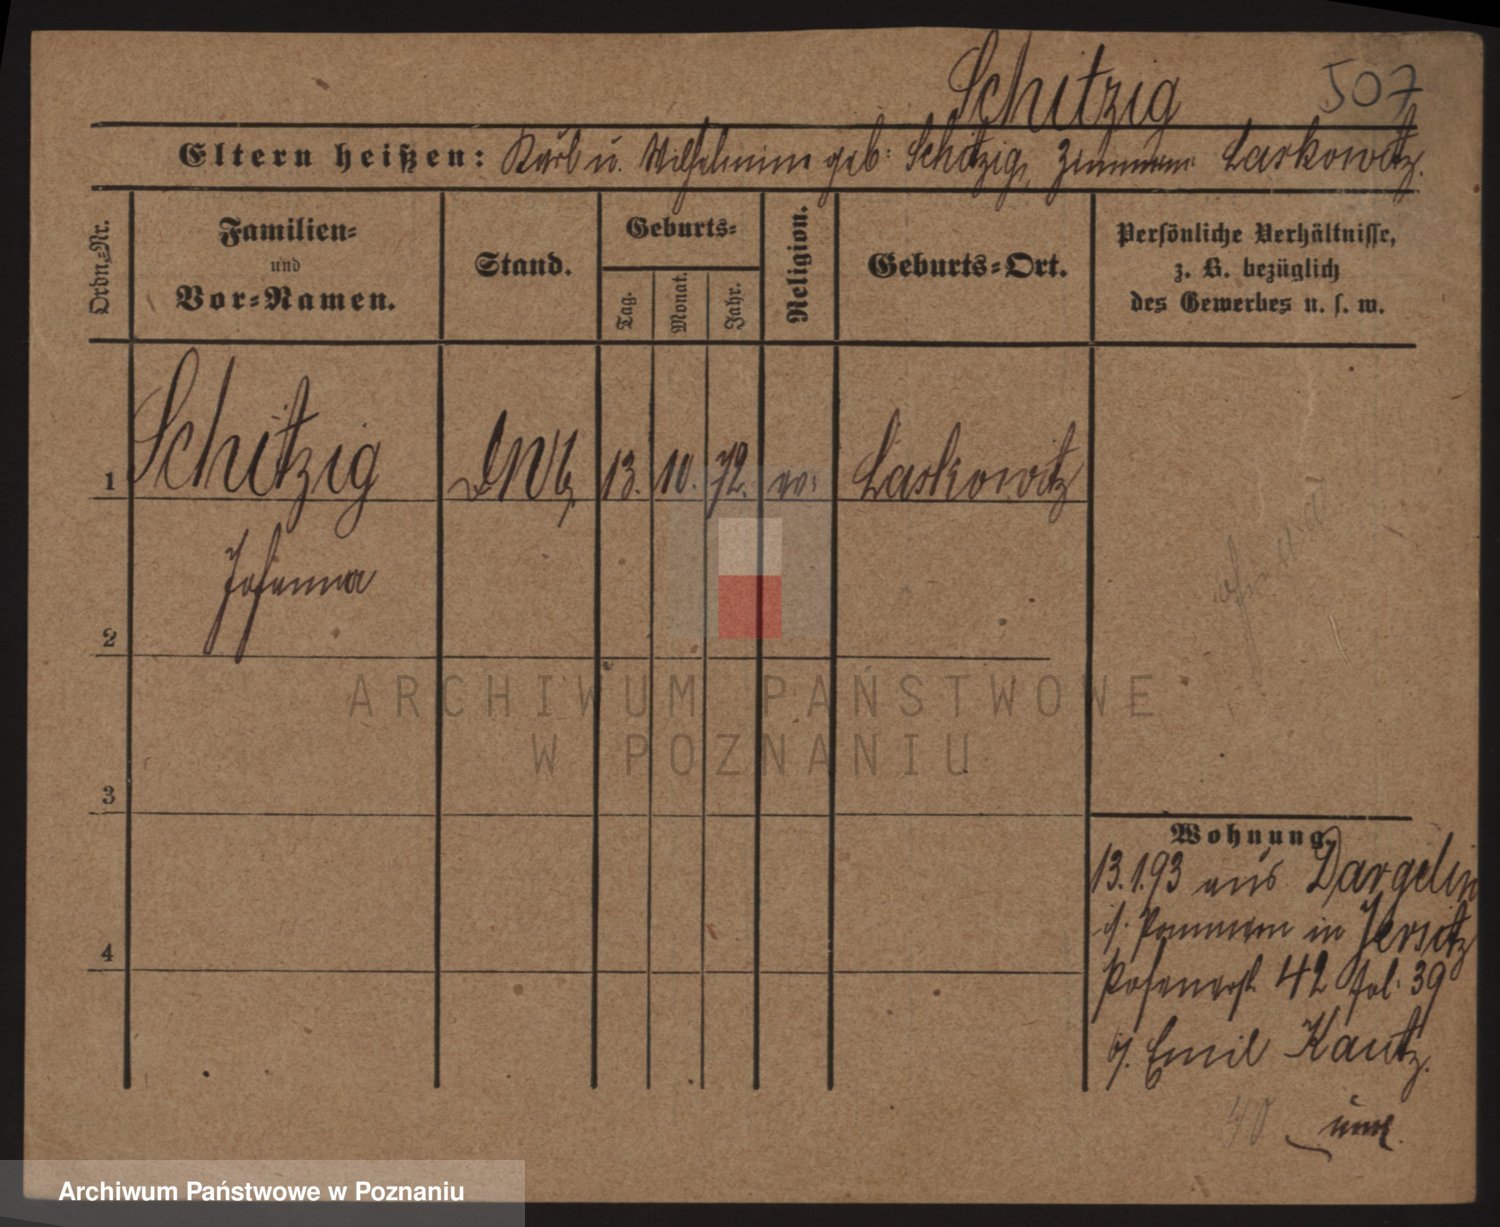 Schitzig 507
Eltern heißen: Karl u. Wilhelmine geb: Schitzig, Laskowitz.
Ordn.=Nr.
Familien=
und
Vor=Namen.
Stand.
Geburts=
Tag.
Monat.
Jahr.
Religion.
Geburts=Ort.
Persönliche Verhältnisse,
z. B. bezüglich
des Gewerbes u. s. w.
1 Schitzig 13. 10. 72. ev: Laskowitz
Johanna
2
3
4
Wohnung.
13.1.93 aus Dargelin
i/. Pommern in Jersitz
Posenerst. 42 fol: 39
b/. Emil Kautz.
40
ARCHIWUM PAŃSTWOWE
W POZNANIU
Archiwum Państwowe w Poznaniu